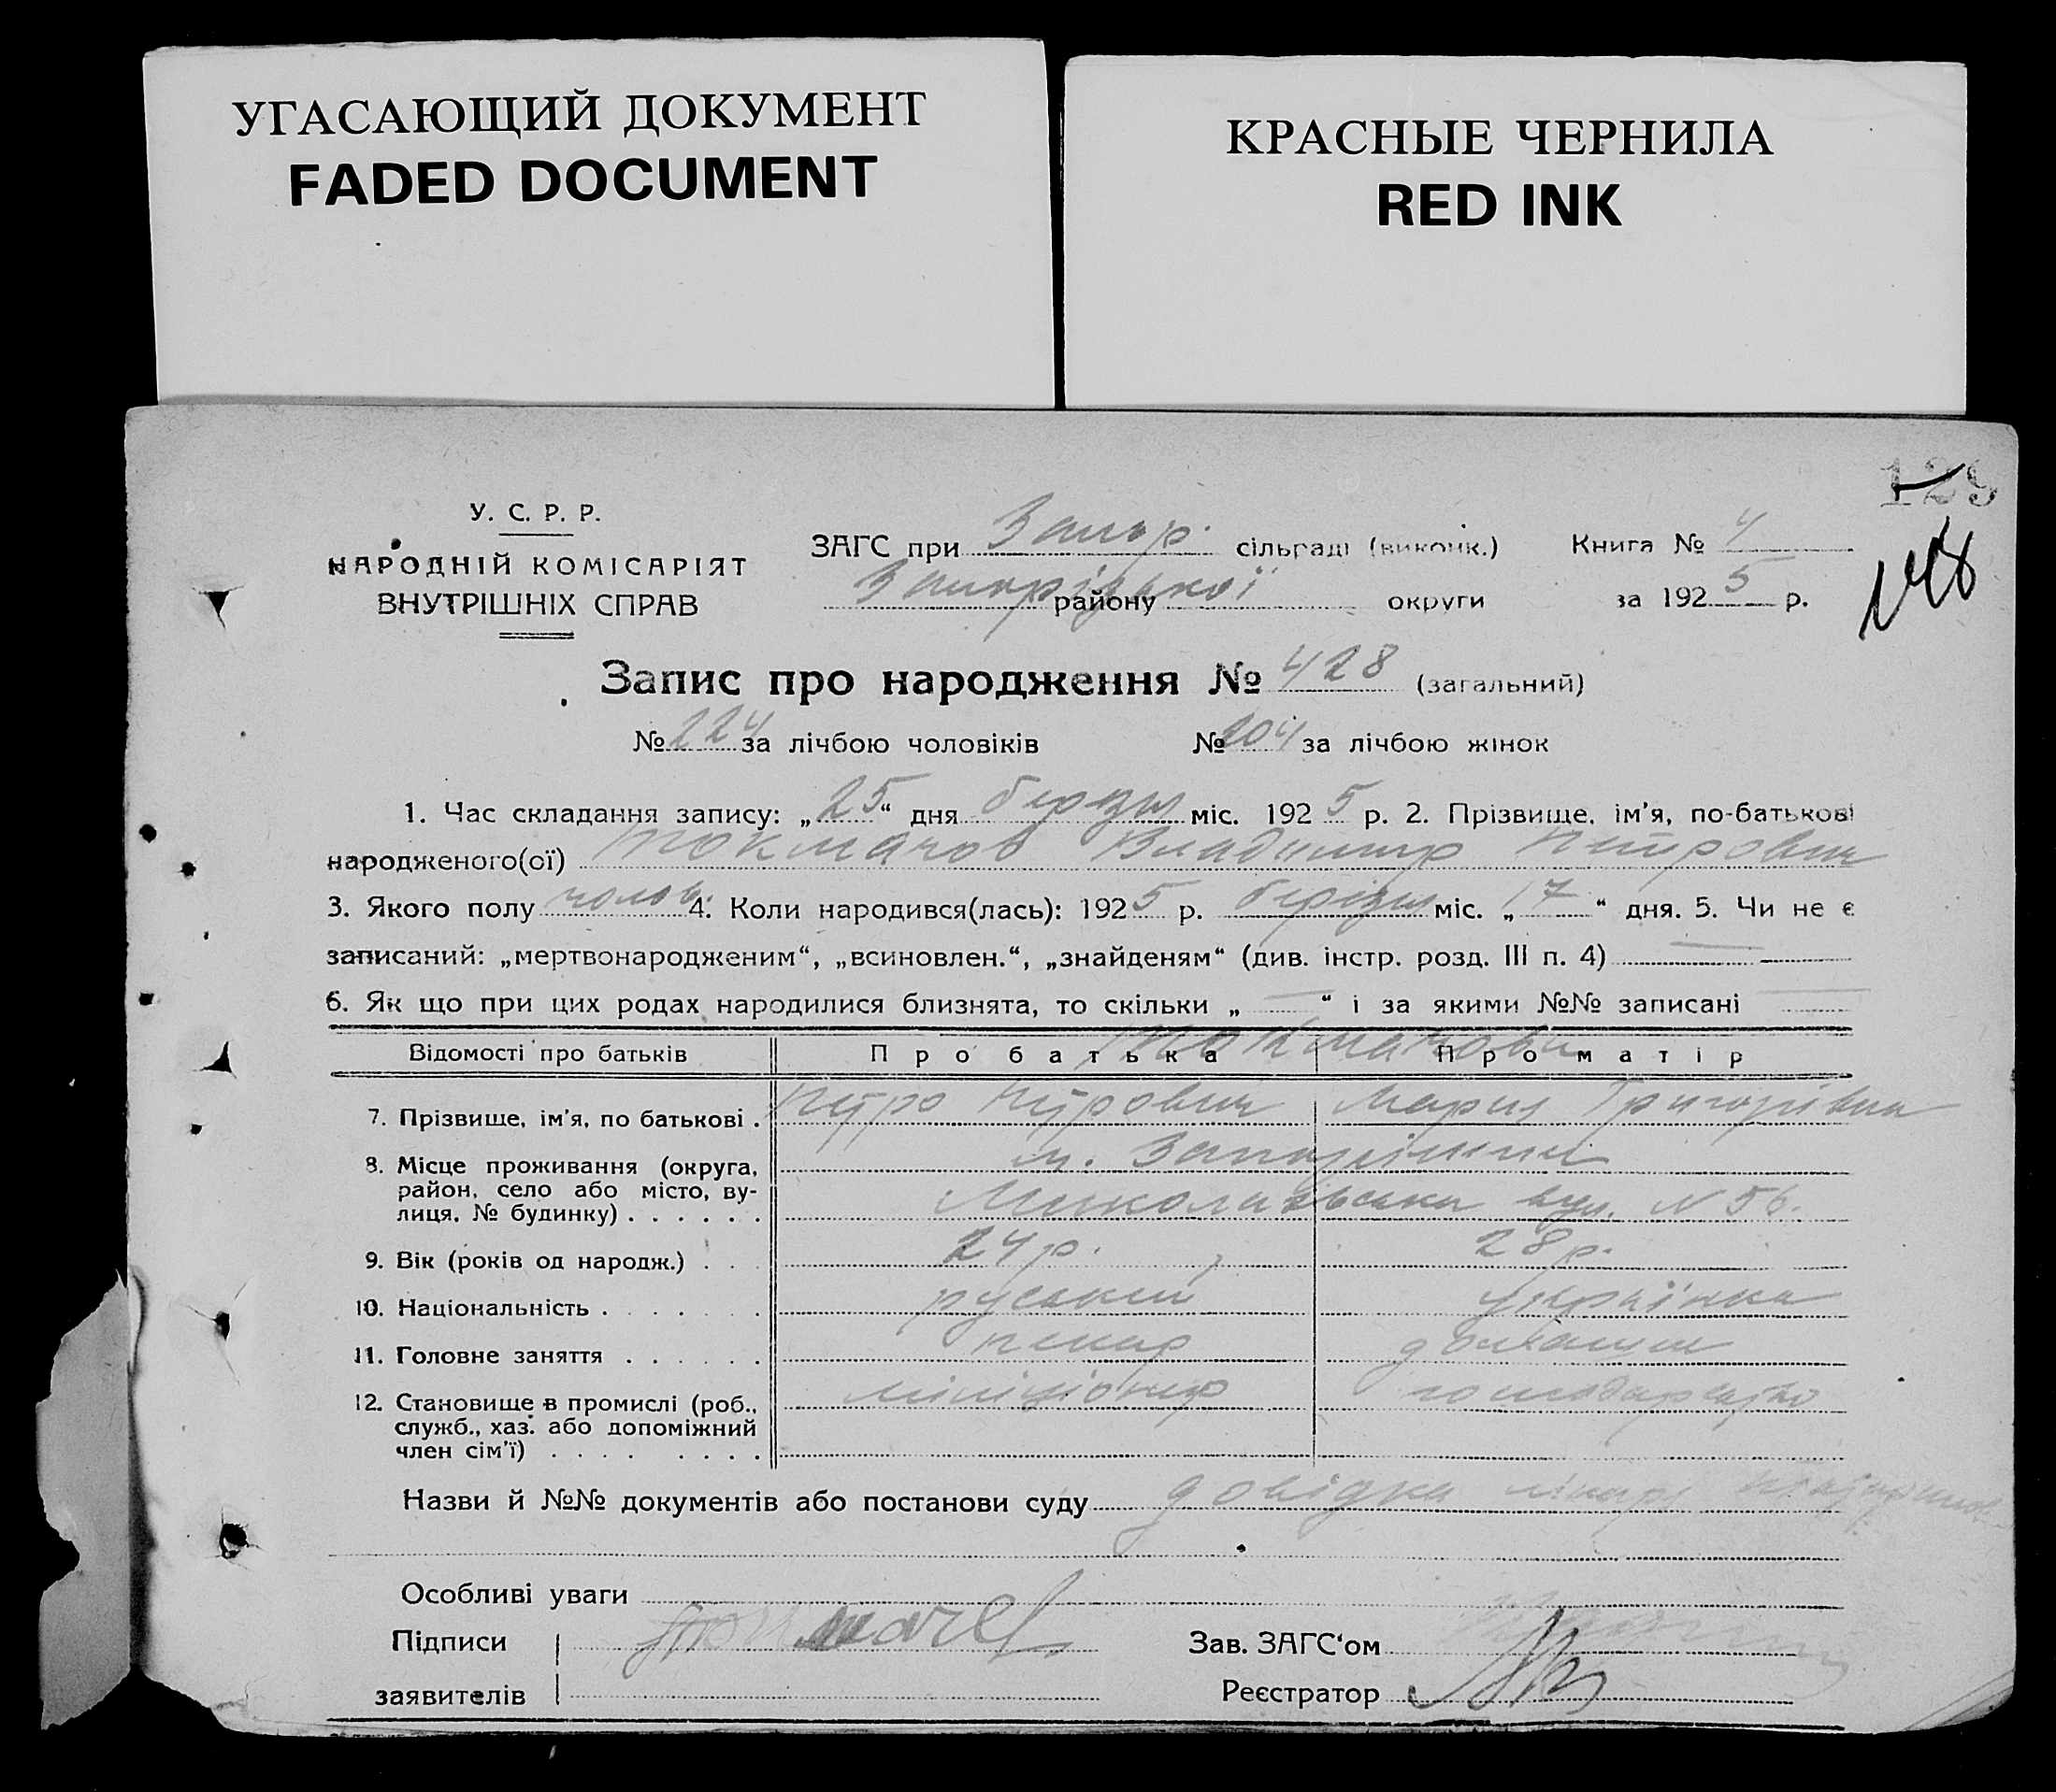 УГАСАЮЩИЙ ДОКУМЕНТ
FADED DOCUMENT
КРАСНЫЕ ЧЕРНИЛА
RED INK
129
148
У. С. Р. Р.
НАРОДНІЙ КОМІСАРІЯТ
ВНУТРІШНІХ СПРАВ
ЗАГС при Запор. сільраді (виконк.) Книга № 4
Запорізької району округи за 1925 р.
Запис про народження № 428 (загальний)
№ 224 за лічбою чоловіків № 204 за лічбою жінок
1. Час складання запису: „25“ дня березня міс. 1925 р. 2. Прізвище, ім'я, по-батькові
народженого(ої) Токмачов Владимир Петрович
3. Якого полу чолов. 4. Коли народився(лась): 1925 р. березня міс. „17“ дня. 5. Чи не є
записаний: „мертвонародженим“, „всиновлен.“, „знайденям“ (див. інстр. розд. III п. 4)
6. Як що при цих родах народилися близнята, то скільки „ “ і за якими №№ записані
Токмачови
Відомості про батьків Про батька Про матір
7. Прізвище, ім'я, по батькові . Петро Петрович Мария Григорівна
8. Місце проживання (округа, м. Запоріжжя
район, село або місто, ву-
лиця, № будинку) . . . . . . Миколаївська вул. N 56.
9. Вік (років од народж.) . . . 24 р. 28 р.
10. Національність . . . . . . . руський українка
11. Головне заняття . . . . . .
12. Становище в промислі (роб., міліціонер
служб., хаз. або допоміжний
член сім'ї) . . . . . . . .
Назви й №№ документів або постанови суду довідка лікаря
Особливі уваги
Підписи Зав. ЗАГС'ом
заявителів Реєстратор